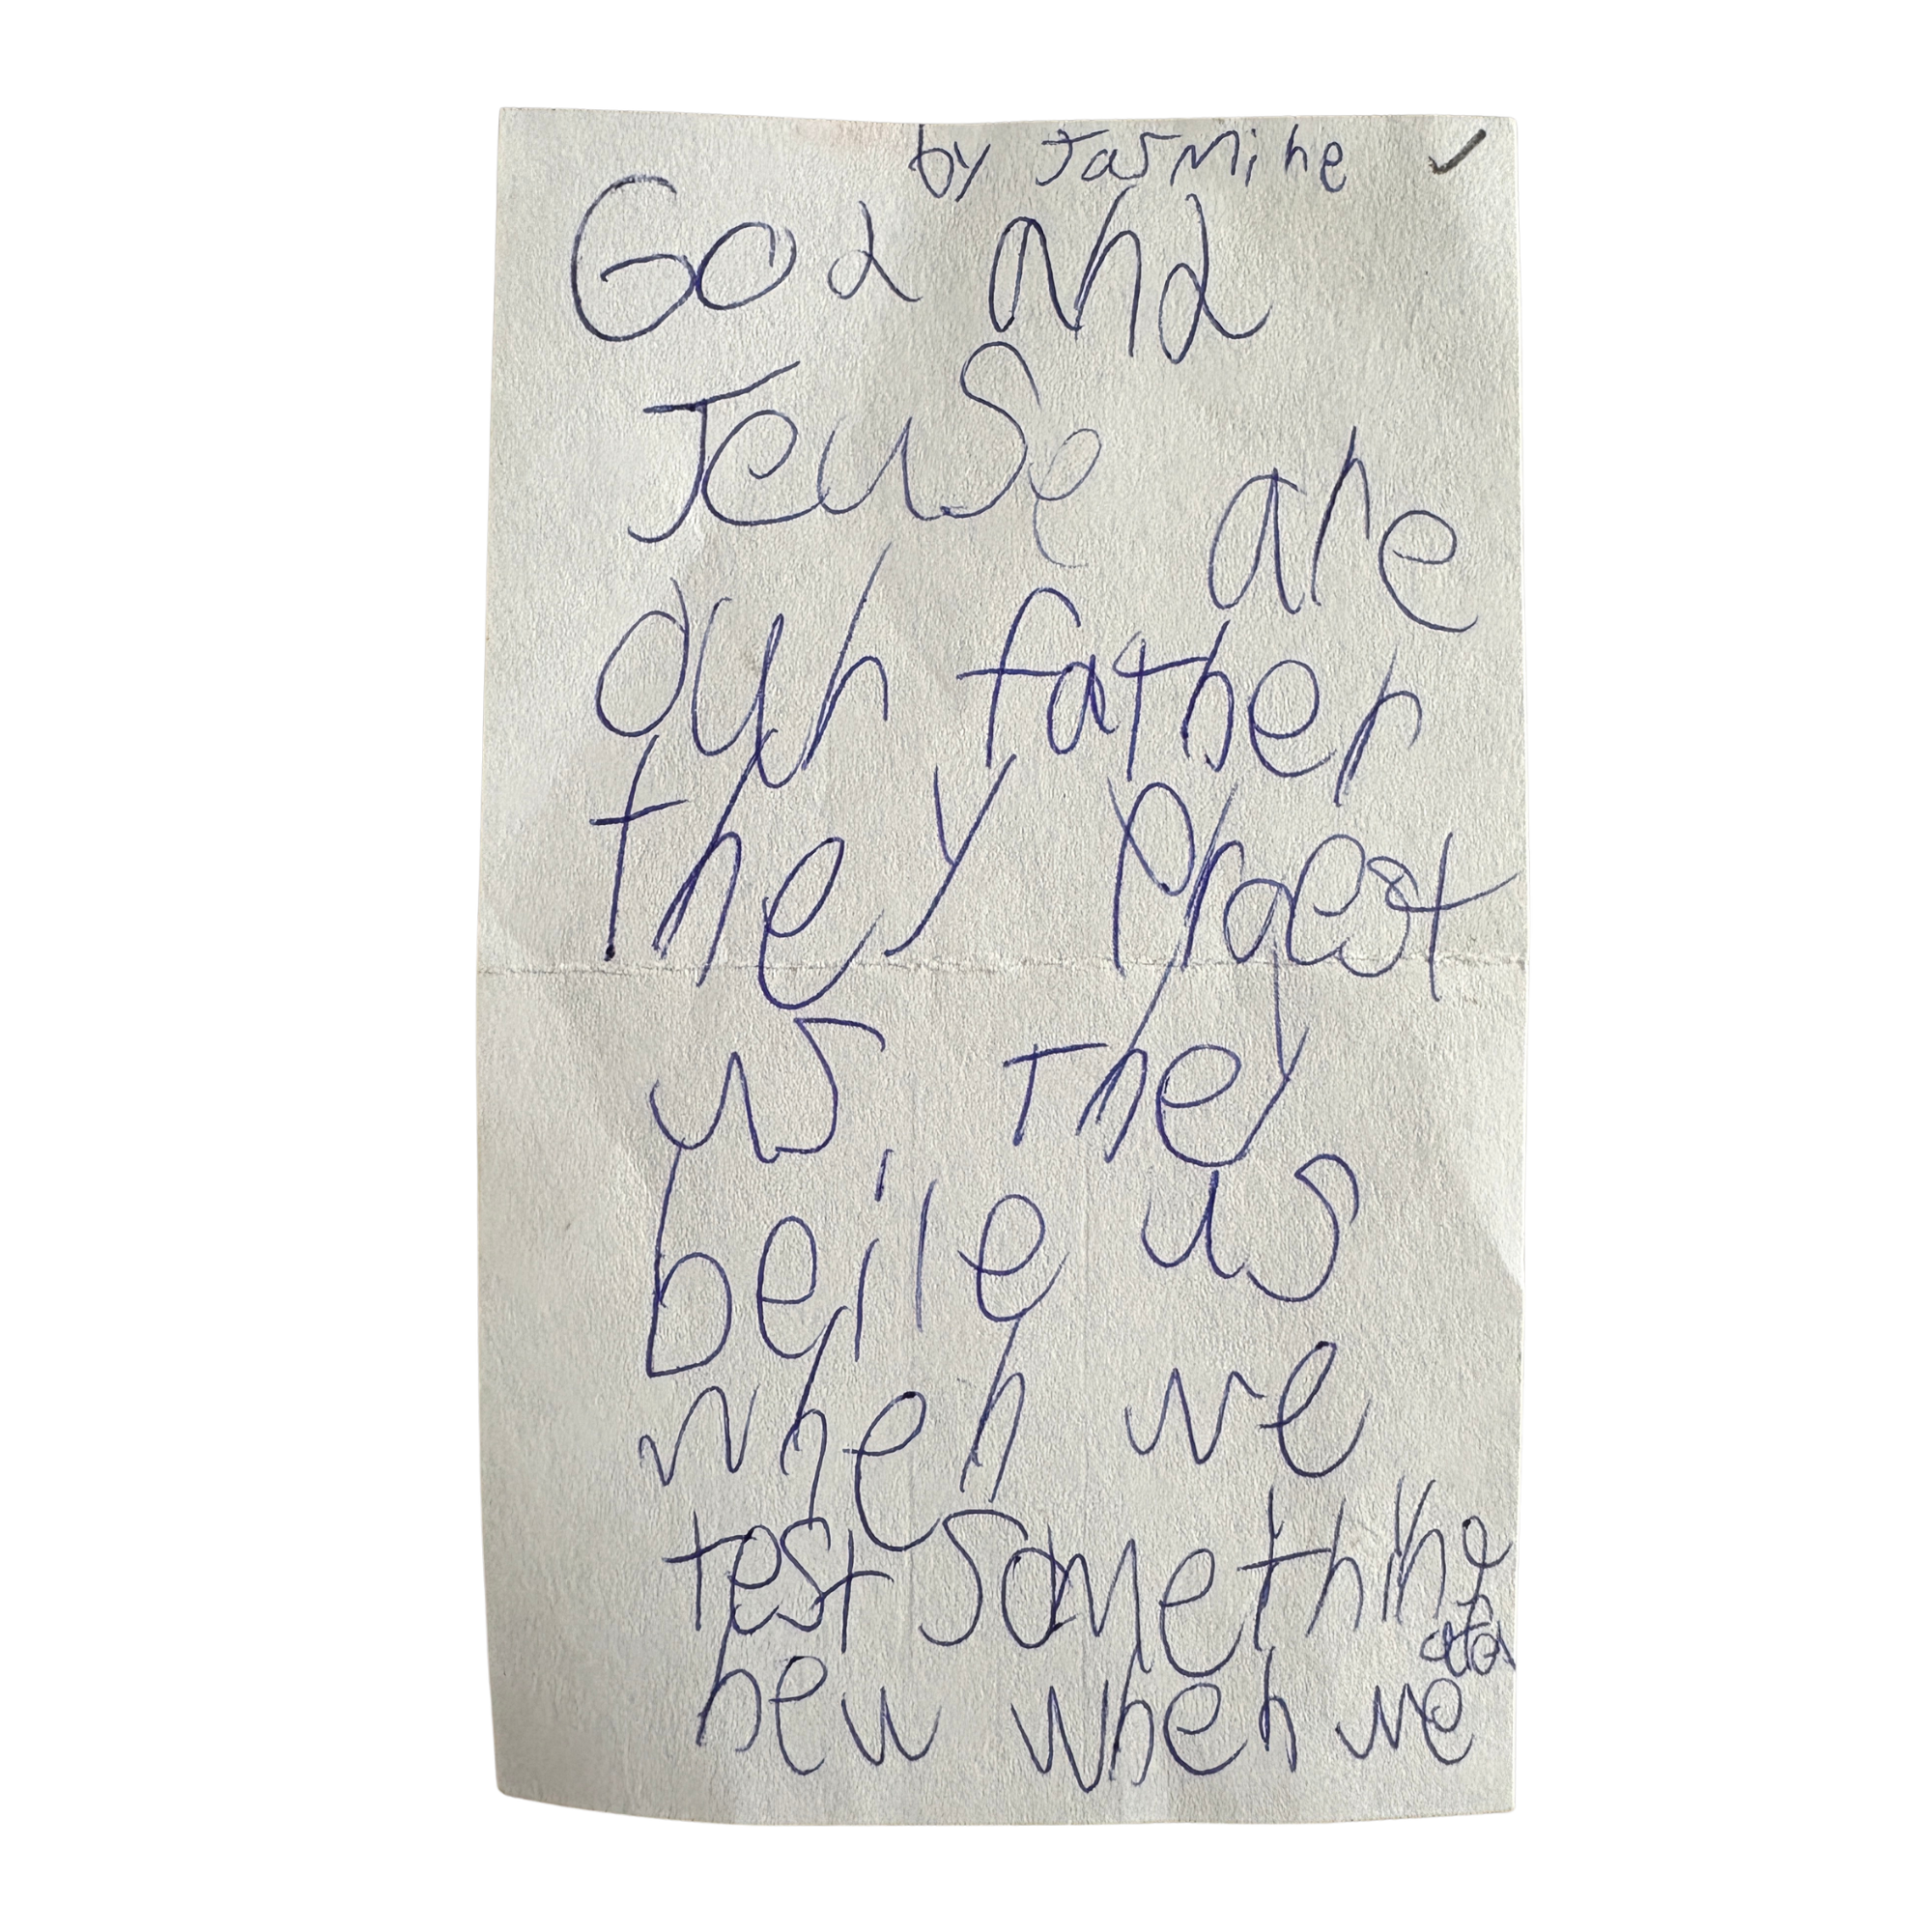 by Jasmine ✓
God and
Jeuse are
our father
they Praest
us. They
beile us
when we
test something
new when we